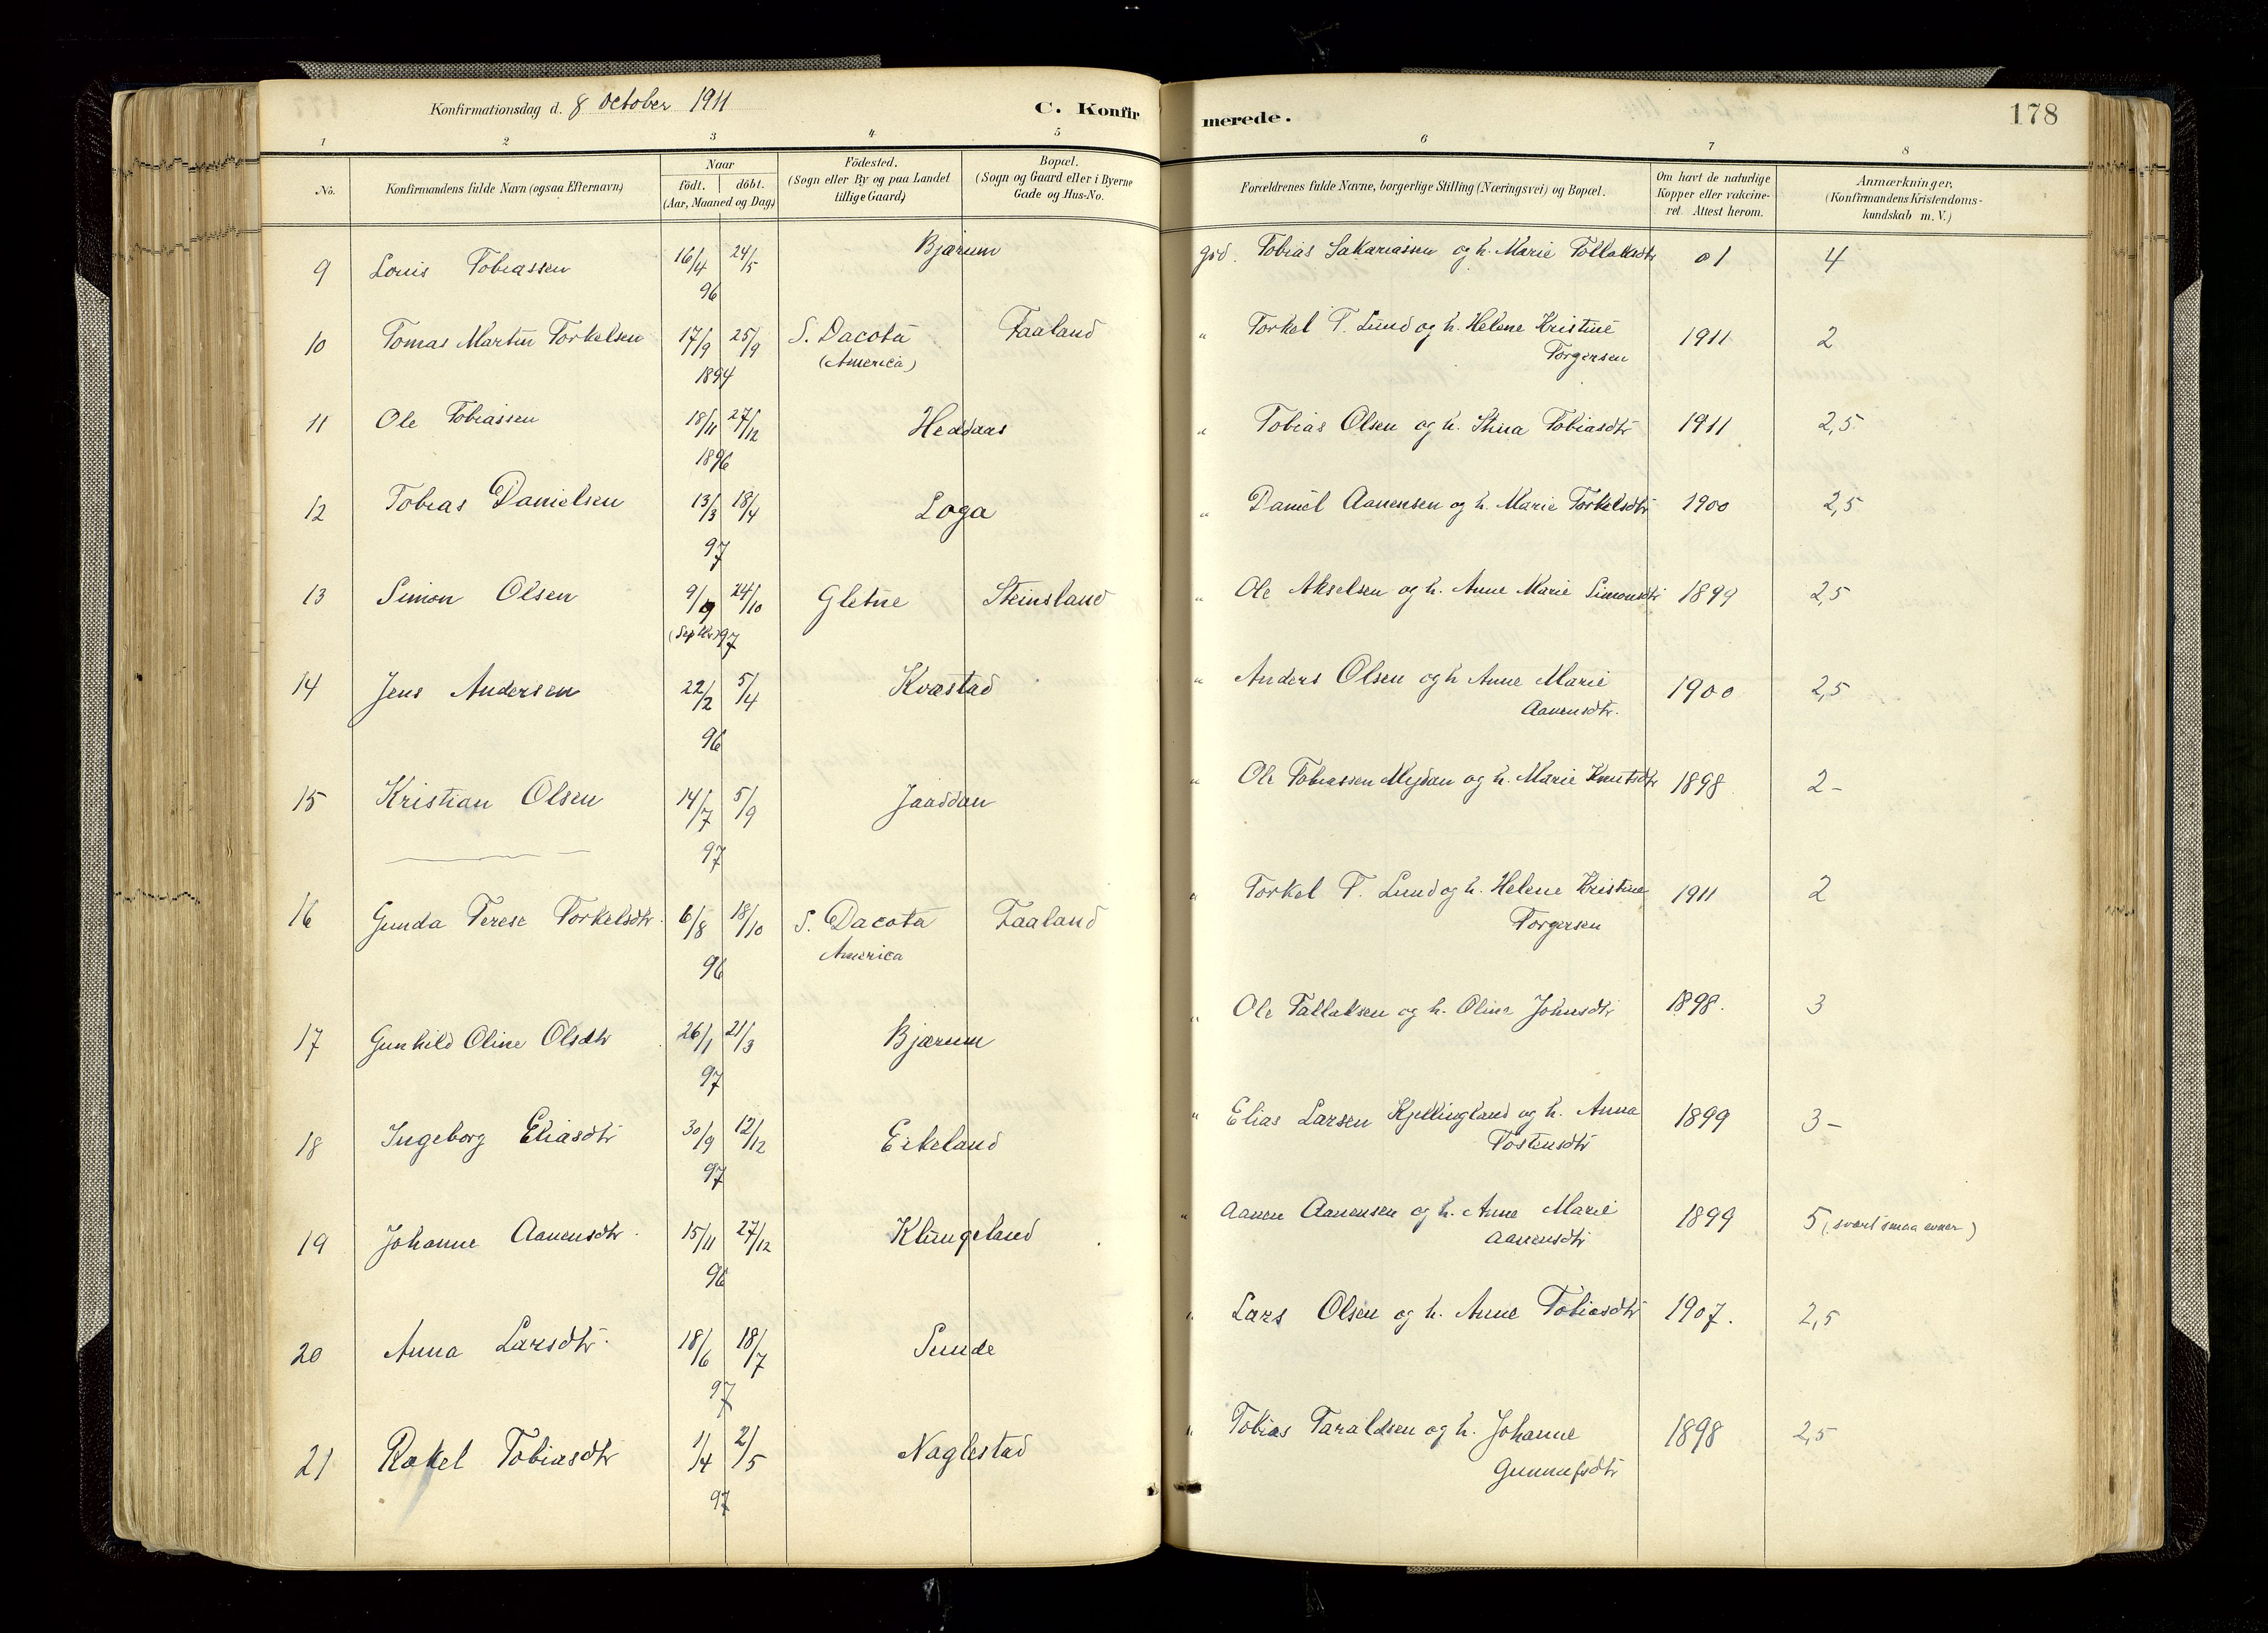 Konfirmationsdag d. 8 October 1911
C. Konfirmerede.
178
1 2 3 4 5 6 7 8
No. Konfirmandens fulde Navn (ogsaa Efternavn) Naar födt. döbt. (Aar, Maaned og Dag) Födested. (Sogn eller By og paa Landet tillige Gaard) Bopæl. (Sogn og Gaard eller i Byerne Gade og Hus-No. Forældrenes fulde Navne, borgerlige Stilling (Næringsvei) og Bopæl. Om havt de naturlige Kopper eller vakcineret. Attest herom. Anmærkninger. (Konfirmandens Kristendomskundskab m. V.)
9 Louis Tobiassen 16/4 24/5 96 Bjærum grd. Tobias Sakariassen og h. Marie Tollaksdtr 01 4
10 Tomas Martin Torkelsen 17/9 25/9 1894 S. Dacota (America) Faaland " Torkel T. Lund og h. Helene Kristine Torgersen 1911 2
11 Ole Tobiassen 18/11 27/12 1896 Heddaas " Tobias Olsen og h. Stina Tobiasdtr 1911 2,5
12 Tobias Danielsen 13/3 18/4 97 Loga " Daniel Aanensen og h. Marie Torkelsdtr 1900 2,5
13 Simon Olsen 9/9 24/10 (Septbr.) 97 Gletne Steinsland " Ole Akselsen og h. Anne Marie Simonsdtr 1899 2,5
14 Jens Andersen 22/2 5/4 96 Kvæstad " Anders Olsen og h Anne Marie Aanensdtr. 1900 2,5
15 Kristian Olsen 14/7 5/9 97 Jaaddan " Ole Tobiassen Mydan og h. Marie Knutsdtr 1898 2-
16 Gunda Terese Torkelsdtr. 6/8 18/10 96 S. Dacota America Faaland " Torkel T. Lund og h. Helene Kristine Torgersen 1911 2
17 Gunhild Oline Olsdtr 26/1 21/3 97 Bjærum " Ole Tallaksen og h. Oline Johnsdtr 1898. 3
18 Ingeborg Eliasdtr 30/9 12/12 97 Eikeland " Elias Larsen Kjellingland og h. Anna Tostensdtr 1899 3-
19 Johanne Aanensdtr. 15/11 27/12 96 Klungeland " Aanen Aanensen og h. Anne Marie Aanensdtr 1899 5 (svært smaa evner)
20 Anna Larsdtr. 18/6 18/7 97 Sunde " Lars Olsen og h. Anne Tobiasdtr 1907. 2,5
21 Rakel Tobiasdtr 1/4 2/5 97 Naglestad " Tobias Taraldsen og h. Johanne Gunnufsdtr 1898 2,5